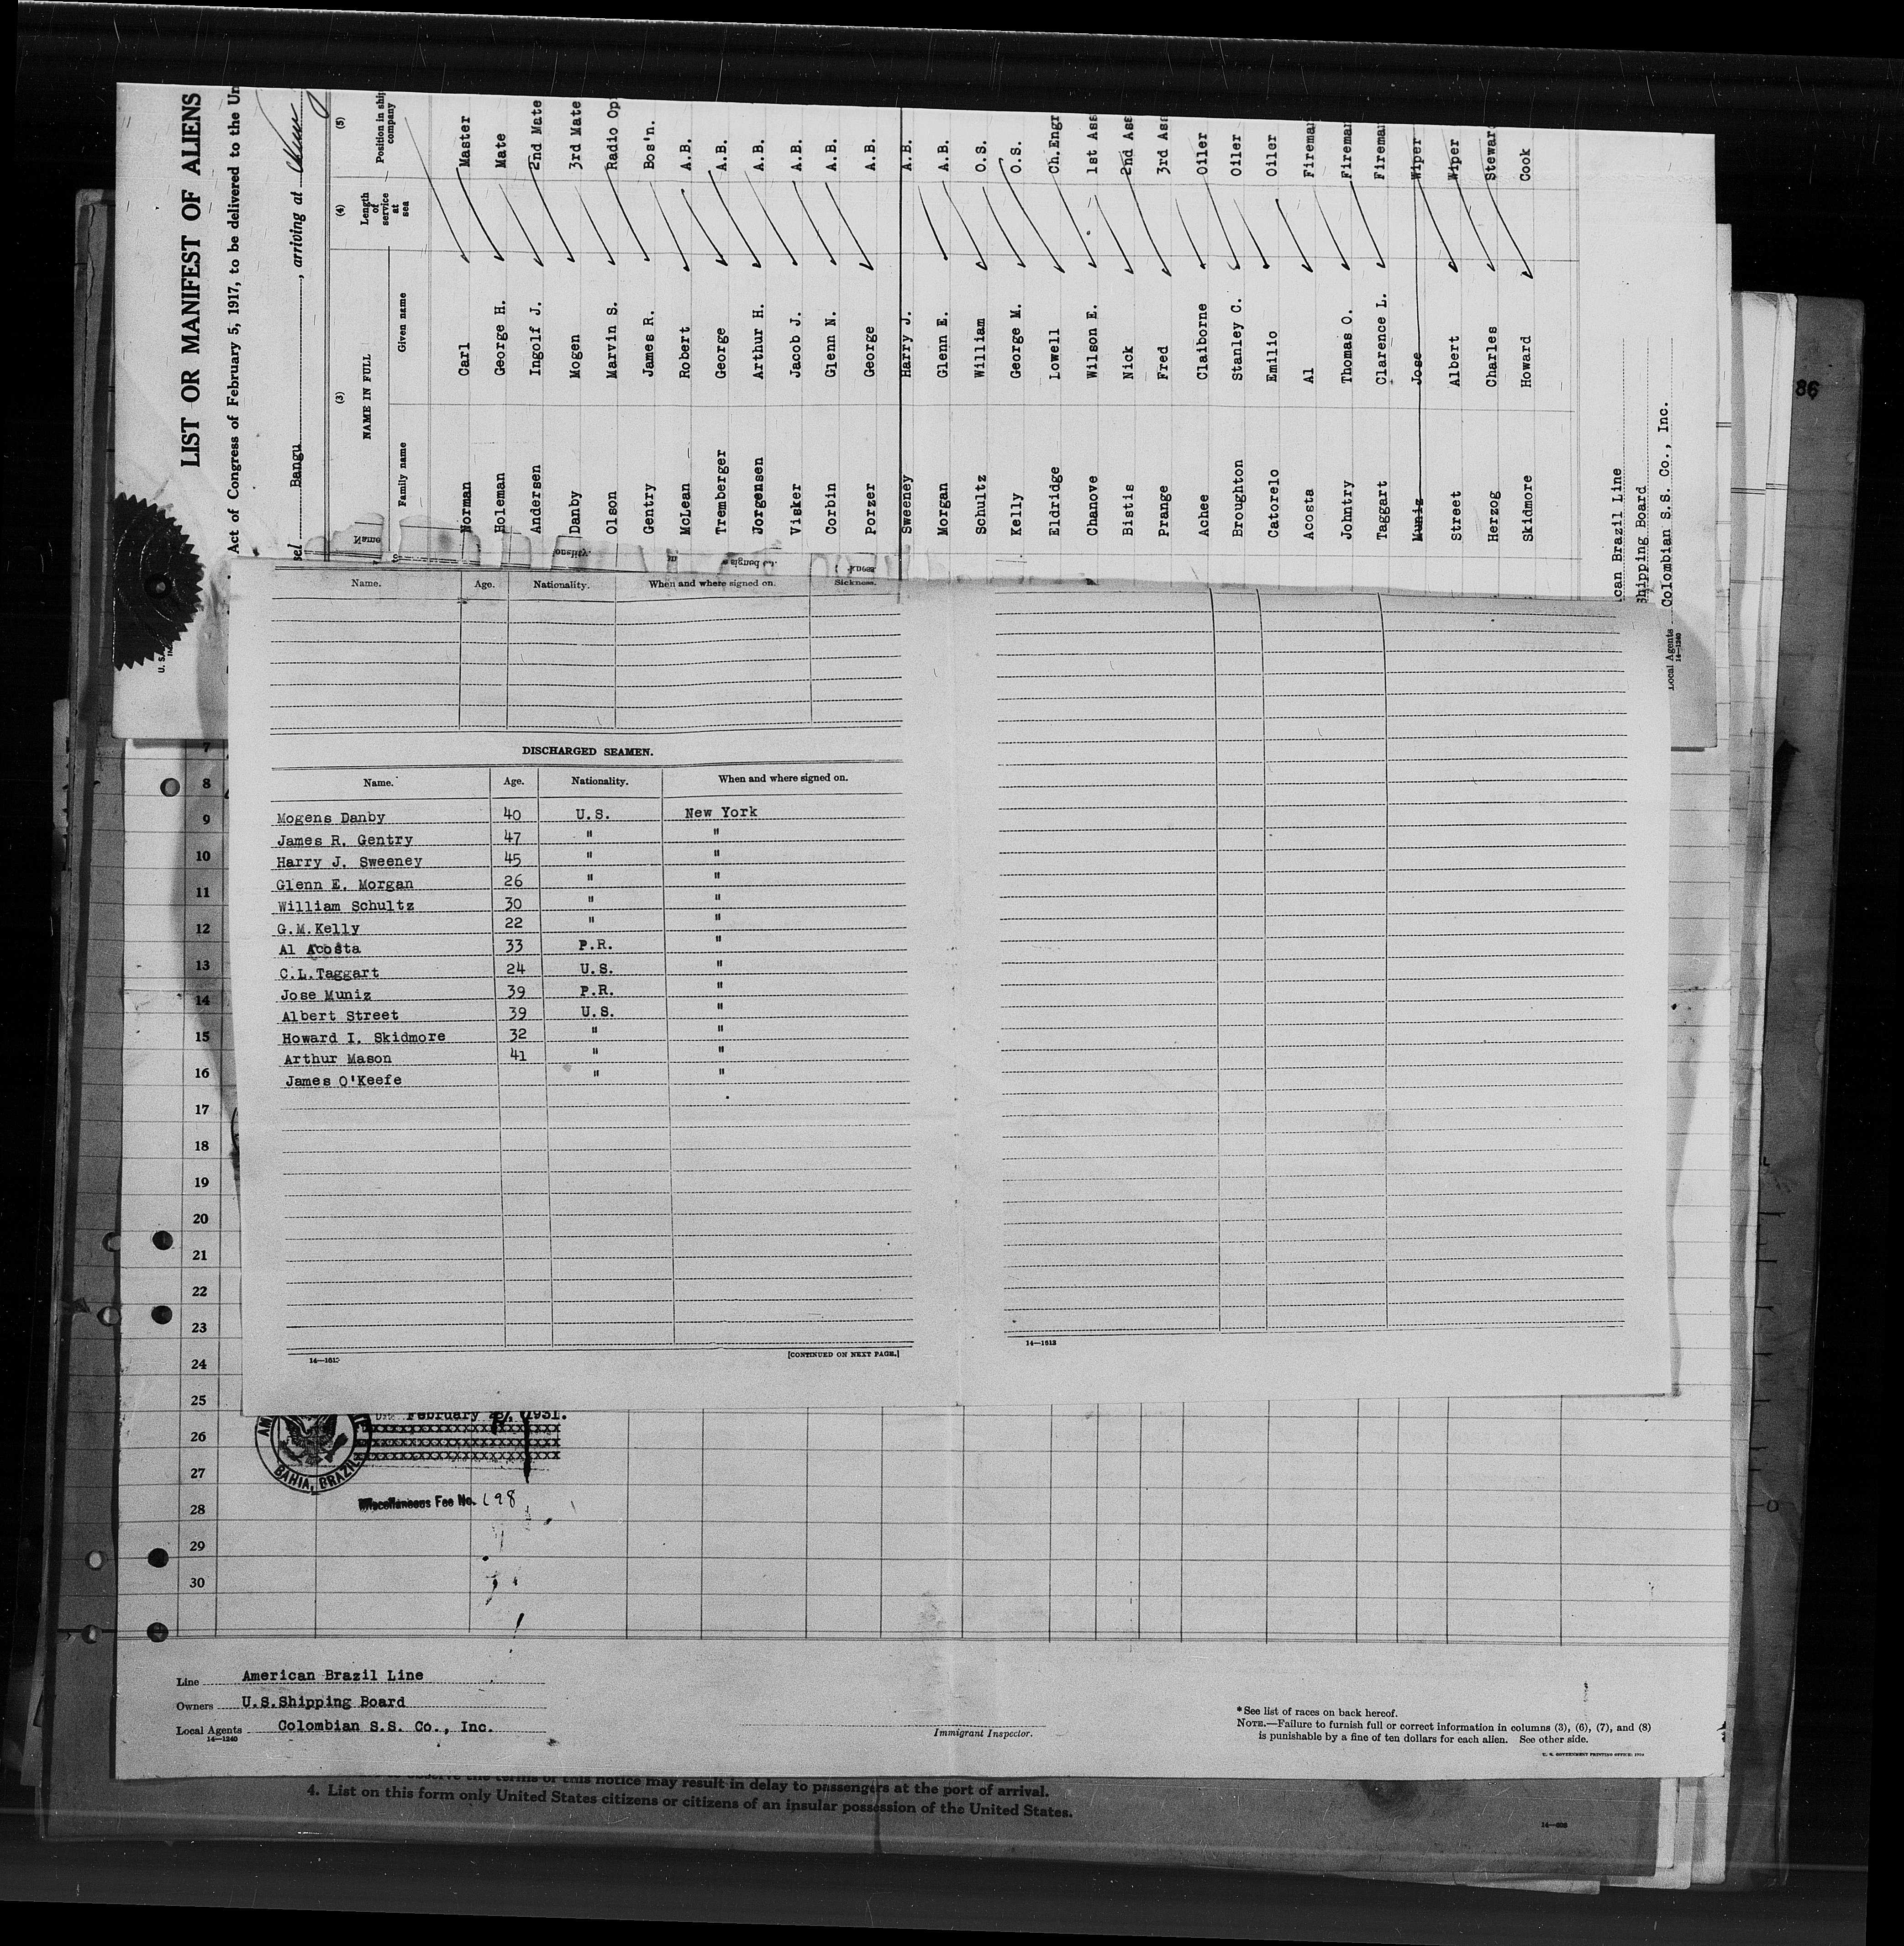 LIST OR MANIFEST OF ALIENS
Act of Congress of February 5, 1917, to be delivered to the
Bangu , arriving at
(3) (4) (5)
NAME IN FULL Length of service at sea Position in ship company
Family name Given name
Norman Carl Master
Holeman George H. Mate
Andersen Ingolf J. 2nd Mate
Danby Mogen 3rd Mate
Olson Marvin S. Radio Op
Gentry James R. Bos'n.
McLean Robert A.B.
Tremberger George A.B.
Jorgensen Arthur H. A.B.
Visker Jacob J. A.B.
Corbin Glenn N. A.B.
Porzer George A.B.
Sweeney Harry J. A.B.
Morgan Glenn E. A.B.
Schultz William O.S.
Kelly George M. O.S.
Eldridge Lowell Ch.Engr
Chanove Wilson E. 1st Ass
Bistis Nick 2nd Ass
Prange Fred 3rd Ass
Achee Claiborne Oiler
Broughton Stanley C. Oiler
Catorelo Emilio Oiler
Acosta Al Fireman
Johntry Thomas O. Fireman
Taggart Clarence L. Fireman
Muniz Jose Wiper
Street Albert Wiper
Herzog Charles Steward
Skidmore Howard Cook
can Brazil Line
Shipping Board
Local Agents Colombian S.S. Co., Inc.
14—1240
86
Name. Age. Nationality. When and where signed on. Sickness.
DISCHARGED SEAMEN.
Name. Age. Nationality. When and where signed on.
Mogens Danby 40 U.S. New York
James R. Gentry 47 " "
Harry J. Sweeney 45 " "
Glenn E. Morgan 26 " "
William Schultz 30 " "
G.M.Kelly 22 " "
Al Acosta 33 P.R. "
C.L.Taggart 24 U.S. "
Jose Muniz 39 P.R. "
Albert Street 39 U.S. "
Howard I. Skidmore 32 " "
Arthur Mason 41 " "
James O'Keefe " "
14—1613 [CONTINUED ON NEXT PAGE.]
14—1613
7
8
9
10
11
12
13
14
15
16
17
18
19
20
21
22
23
24
25
26
27
28
29
30
Date February 1931.
BAHIA, BRAZIL
Miscellaneous Fee No. 198
Line American Brazil Line
Owners U.S.Shipping Board
Local Agents Colombian S.S. Co., Inc.
14—1240
Immigrant Inspector.
*See list of races on back hereof.
NOTE.—Failure to furnish full or correct information in columns (3), (6), (7), and (8)
is punishable by a fine of ten dollars for each alien. See other side.
observe the terms of this notice may result in delay to passengers at the port of arrival.
4. List on this form only United States citizens or citizens of an insular possession of the United States.